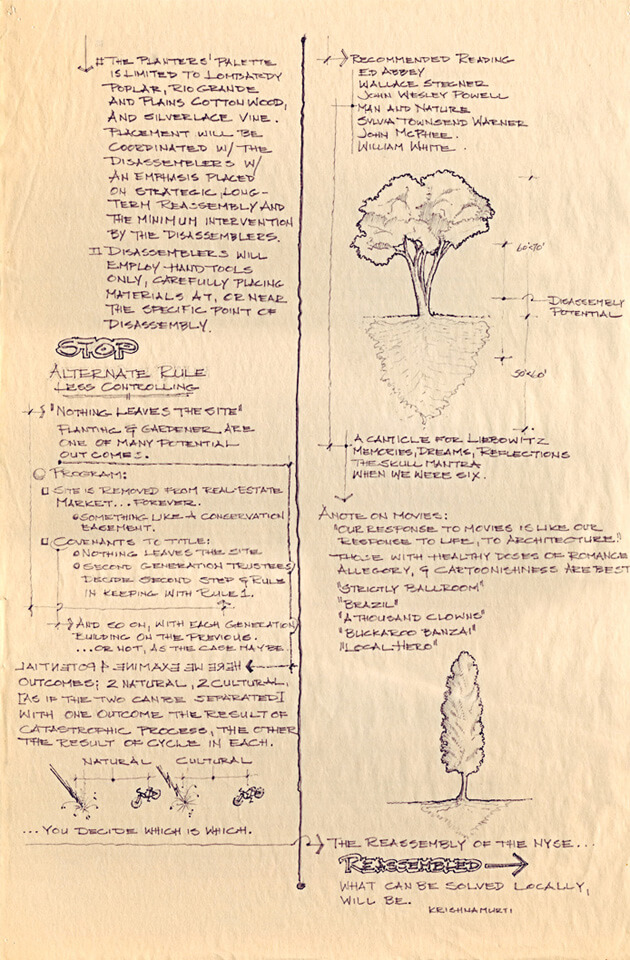 # THE PLANTERS' PALETTE
IS LIMITED TO LOMBARDY
POPLAR, RIO GRANDE
AND PLAINS COTTONWOOD,
AND SILVERLACE VINE.
PLACEMENT WILL BE
COORDINATED W/ THE
DISASSEMBLERS W/
AN EMPHASIS PLACED
ON STRATEGIC LONG-
TERM REASSEMBLY AND
THE MINIMUM INTERVENTION
BY THE DISASSEMBLERS.
II DISASSEMBLERS WILL
EMPLOY HAND TOOLS
ONLY, CAREFULLY PLACING
MATERIALS AT, OR NEAR
THE SPECIFIC POINT OF
DISASSEMBLY.
STOP
ALTERNATE RULE
LESS CONTROLLING
"NOTHING LEAVES THE SITE"
PLANTING & GARDENER ARE
ONE OF MANY POTENTIAL
OUTCOMES.
PROGRAM:
SITE IS REMOVED FROM REAL-ESTATE
MARKET... FOREVER.
SOMETHING LIKE A CONSERVATION
EASEMENT.
COVENANTS TO TITLE:
NOTHING LEAVES THE SITE
SECOND GENERATION TRUSTEES
DECIDE SECOND STEP & RULE
IN KEEPING WITH RULE 1.
AND SO ON, WITH EACH GENERATION
BUILDING ON THE PREVIOUS.
...OR NOT, AS THE CASE MAY BE.
HERE WE EXAMINE 4 POTENTIAL
OUTCOMES; 2 NATURAL, 2 CULTURAL.
[AS IF THE TWO CAN BE SEPARATED]
WITH ONE OUTCOME THE RESULT OF
CATASTROPHIC PROCESS, THE OTHER
THE RESULT OF CYCLE IN EACH.
NATURAL CULTURAL
...YOU DECIDE WHICH IS WHICH.
RECOMMENDED READING
ED ABBEY
WALLACE STEGNER
JOHN WESLEY POWELL
MAN AND NATURE
SYLVIA TOWNSEND WARNER
JOHN MCPHEE.
WILLIAM WHITE.
60'-70'
DISASSEMBLY
POTENTIAL
50'-60'
A CANTICLE FOR LIEBOWITZ
MEMORIES, DREAMS, REFLECTIONS
THE SKULL MANTRA
WHEN WE WERE SIX.
A NOTE ON MOVIES:
"OUR RESPONSE TO MOVIES IS LIKE OUR
RESPONSE TO LIFE, TO ARCHITECTURE."
THOSE WITH HEALTHY DOSES OF ROMANCE
ALLEGORY, & CARTOONISHNESS ARE BEST
"STRICTLY BALLROOM"
"BRAZIL"
"A THOUSAND CLOWNS"
"BUCKAROO BANZAI"
"LOCAL HERO"
THE REASSEMBLY OF THE NYSE...
REASSEMBLED
WHAT CAN BE SOLVED LOCALLY,
WILL BE.
KRISHNAMURTI